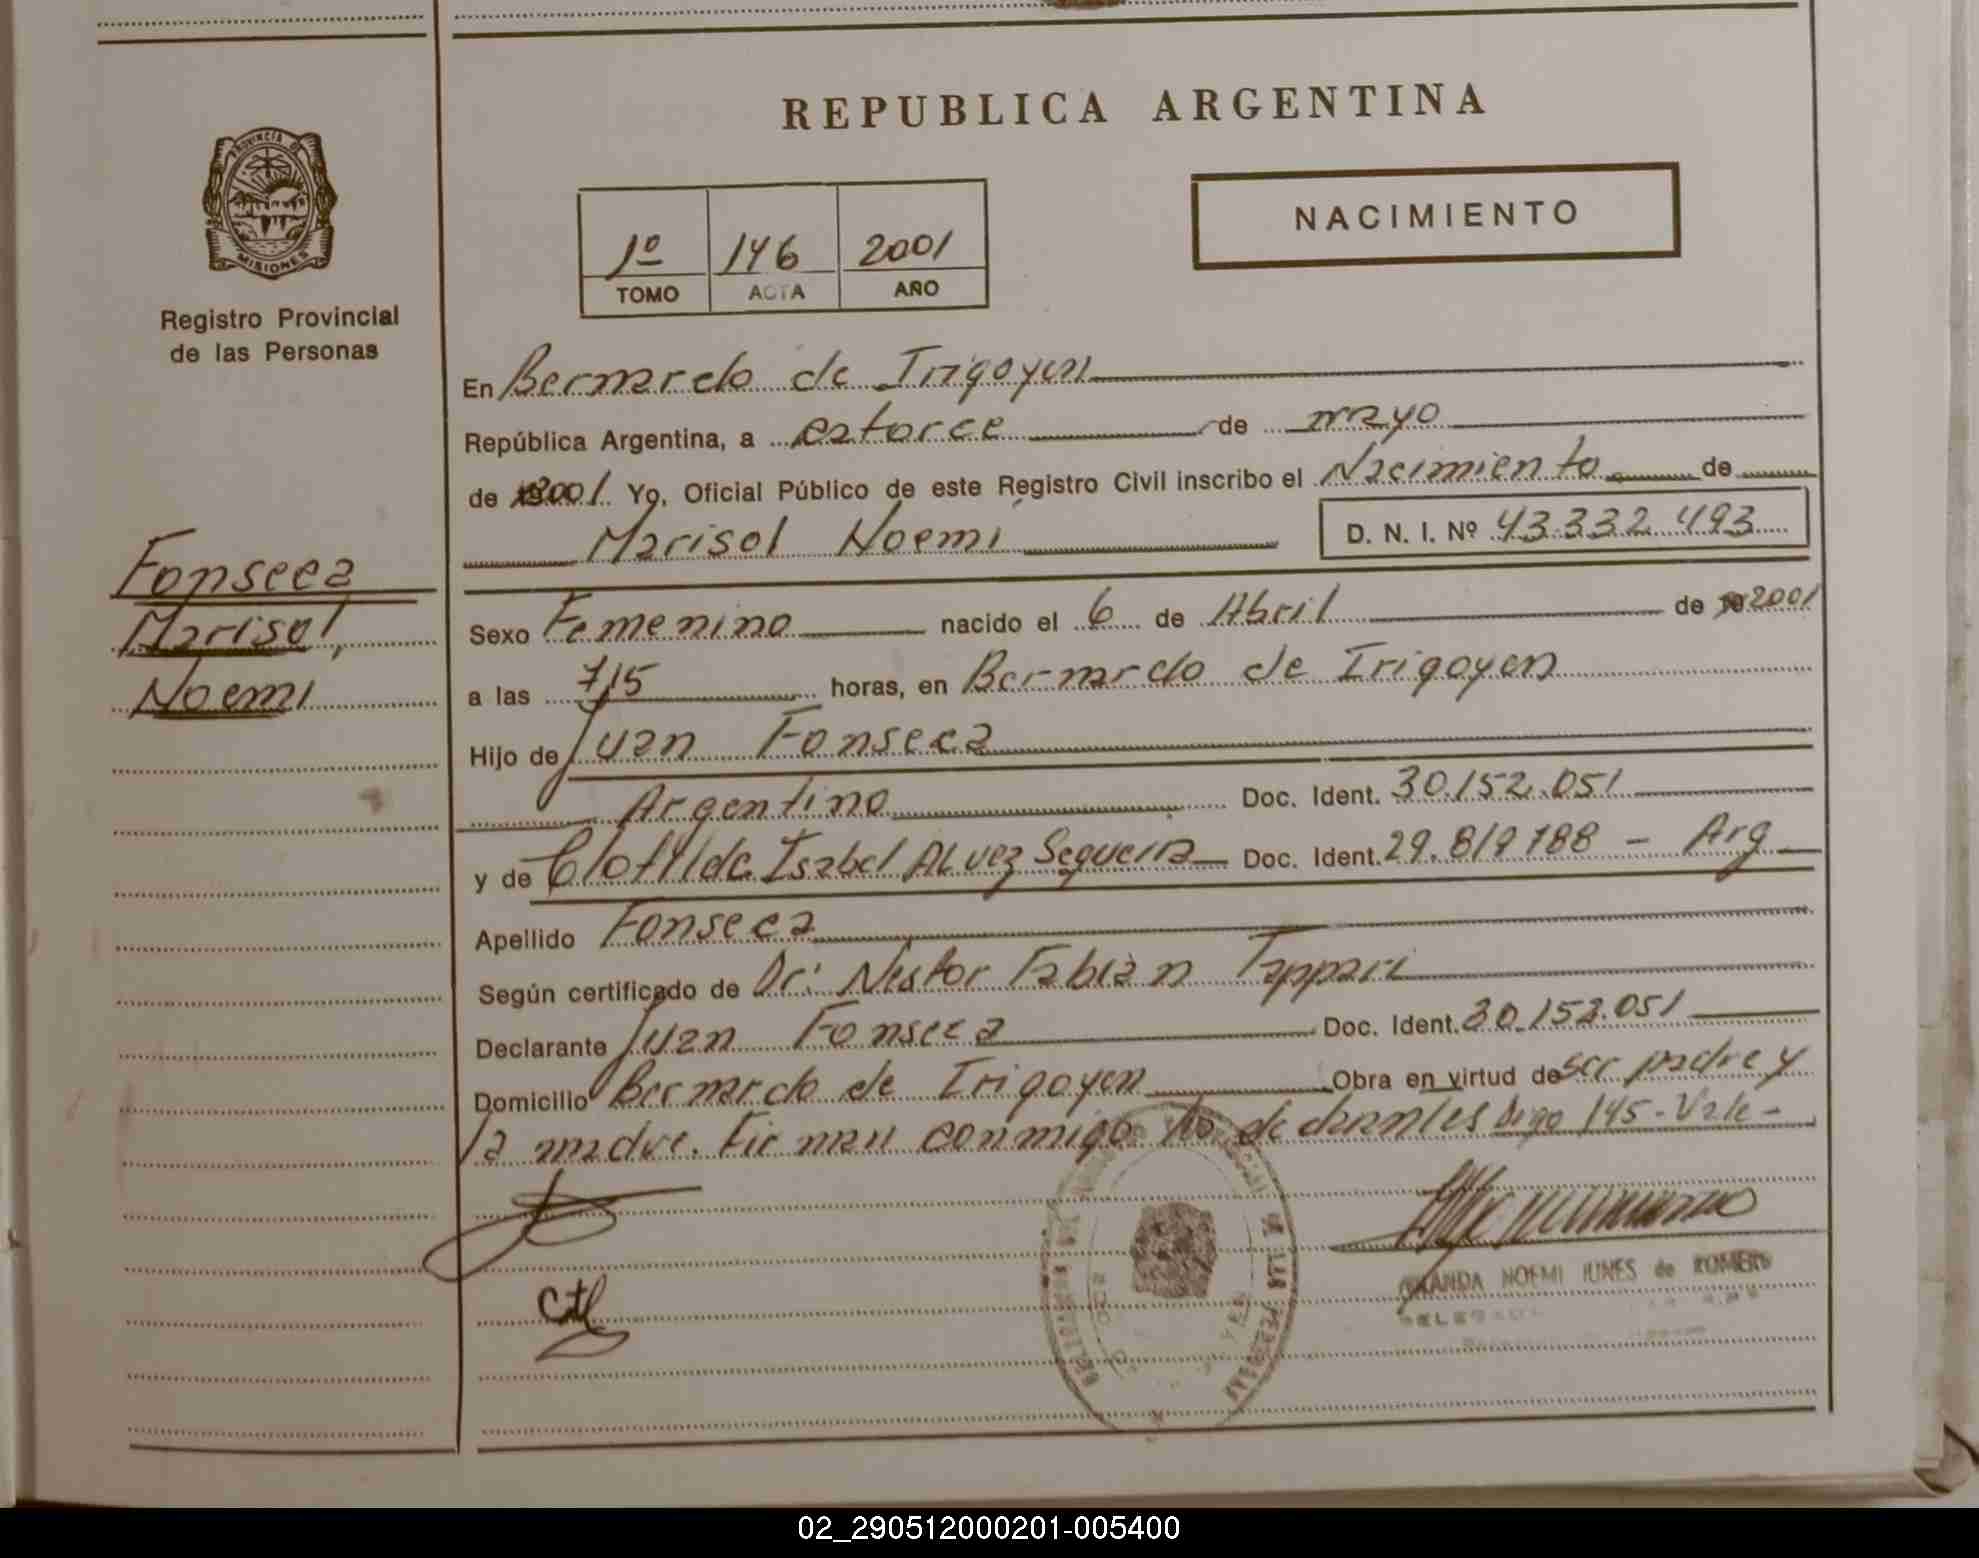 REPUBLICA ARGENTINA
PROVINCIA DE
MISIONES
Registro Provincial
de las Personas
NACIMIENTO
1º 146 2001
TOMO ACTA AÑO
En Bernardo de Irigoyen
República Argentina, a catorce de mayo
de 2001 Yo, Oficial Público de este Registro Civil inscribo el Nacimiento de
Marisol Noemi D. N. I. Nº 43.332.493
Fonseca
Marisol,
Noemi
Sexo Femenino nacido el 6 de Abril de 2001
a las 7,15 horas, en Bernardo de Irigoyen
Hijo de Juan Fonseca
Argentino Doc. Ident. 30.152.051
y de Clotilde Isabel ALvez Sequeira Doc. Ident. 29.819788 - Arg
Apellido Fonseca
Según certificado de Dr: Nestor Fabian Tappari
Declarante Juan Fonseca Doc. Ident. 30.152.051
Domicilio Bernardo de Irigoyen Obra en virtud de ser padre y
la madre. Firman conmigo los declarantes Digo 145 - Vale -
NOEMI IUNES de ROMERO
DE LAS PERSONAS
02_290512000201-005400